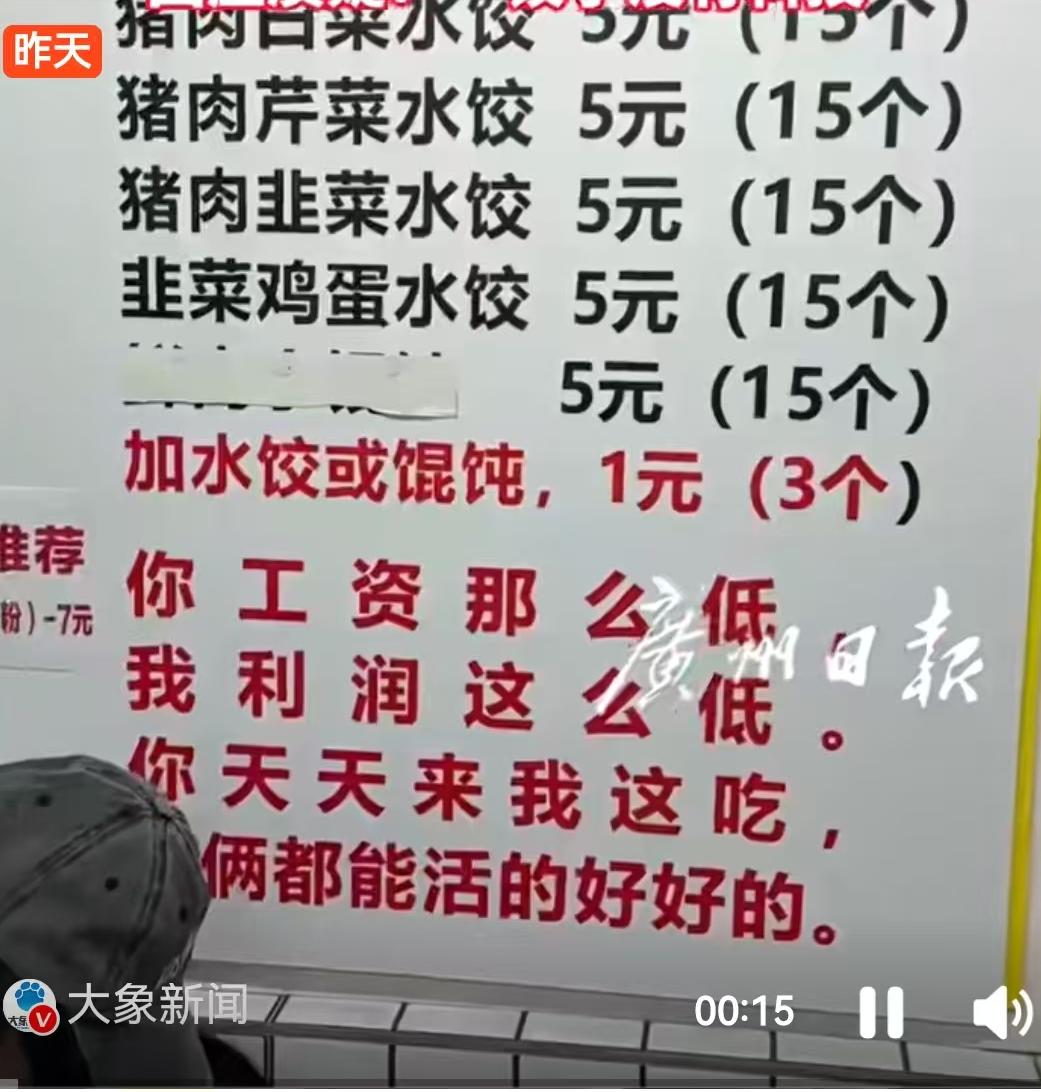 昨天
猪肉白菜水饺 5元（15个）
猪肉芹菜水饺 5元（15个）
猪肉韭菜水饺 5元（15个）
韭菜鸡蛋水饺 5元（15个）
5元（15个）
加水饺或馄饨，1元（3个）
推荐
粉）-7元
你工资那么低，
我利润这么低。
你天天来我这吃，
俩都能活的好好的。
廣州日报
大象新闻
00:15